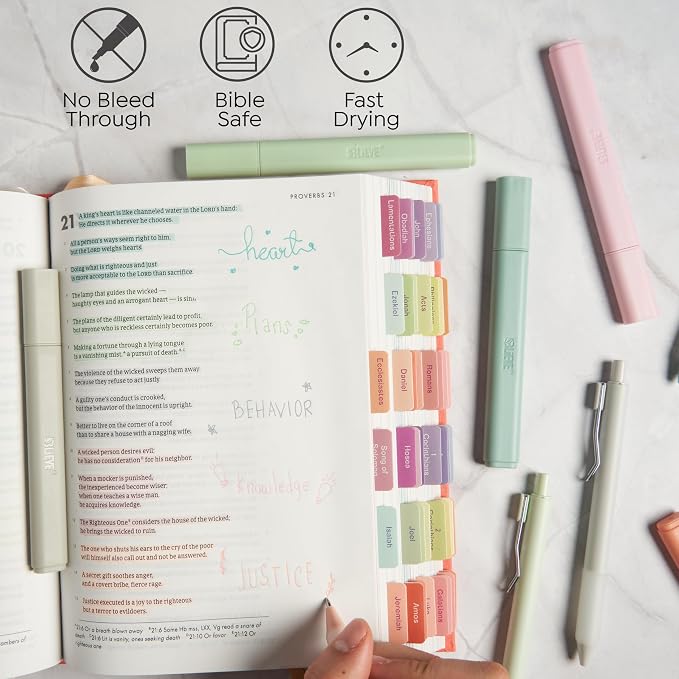 No Bleed
Through
Bible
Safe
Fast
Drying
PROVERBS 21
21 A king's heart is like channeled water in the LORD's hand:
He directs it wherever he chooses.
All a person's ways seem right to him,
but the LORD weighs hearts.
Doing what is righteous and just
is more acceptable to the LORD than sacrifice.
The lamp that guides the wicked —
haughty eyes and an arrogant heart — is sin.
The plans of the diligent certainly lead to profit,
but anyone who is reckless certainly becomes poor.
Making a fortune through a lying tongue
is a vanishing mist, a pursuit of death.
The violence of the wicked sweeps them away
because they refuse to act justly.
A guilty one's conduct is crooked,
but the behavior of the innocent is upright.
Better to live on the corner of a roof
than to share a house with a nagging wife.
A wicked person desires evil;
he has no consideration for his neighbor.
When a mocker is punished,
the inexperienced become wiser;
when one teaches a wise man,
he acquires knowledge.
The Righteous One considers the house of the wicked;
he brings the wicked to ruin.
The one who shuts his ears to the cry of the poor
will himself also call out and not be answered.
A secret gift soothes anger,
and a covert bribe, fierce rage.
Justice executed is a joy to the righteous
but a terror to evildoers.
21:6 Or a breath blown away 21:6 Some Hb mss, LXX, Vg read a snare of
death 21:6 Lit is vanity, ones seeking death 21:10 Or favor 21:12 Or
righteous one
heart
Plans
BEHAVIOR
Knowledge
JUSTICE
Lamentations
Obadiah
John
Ephesians
Ezekiel
Jonah
Acts
Ecclesiastes
Daniel
Romans
Song of
Solomon
Hosea
1
Corinthians
Isaiah
Joel
2
Corinthians
Jeremiah
Amos
Luke
Galatians